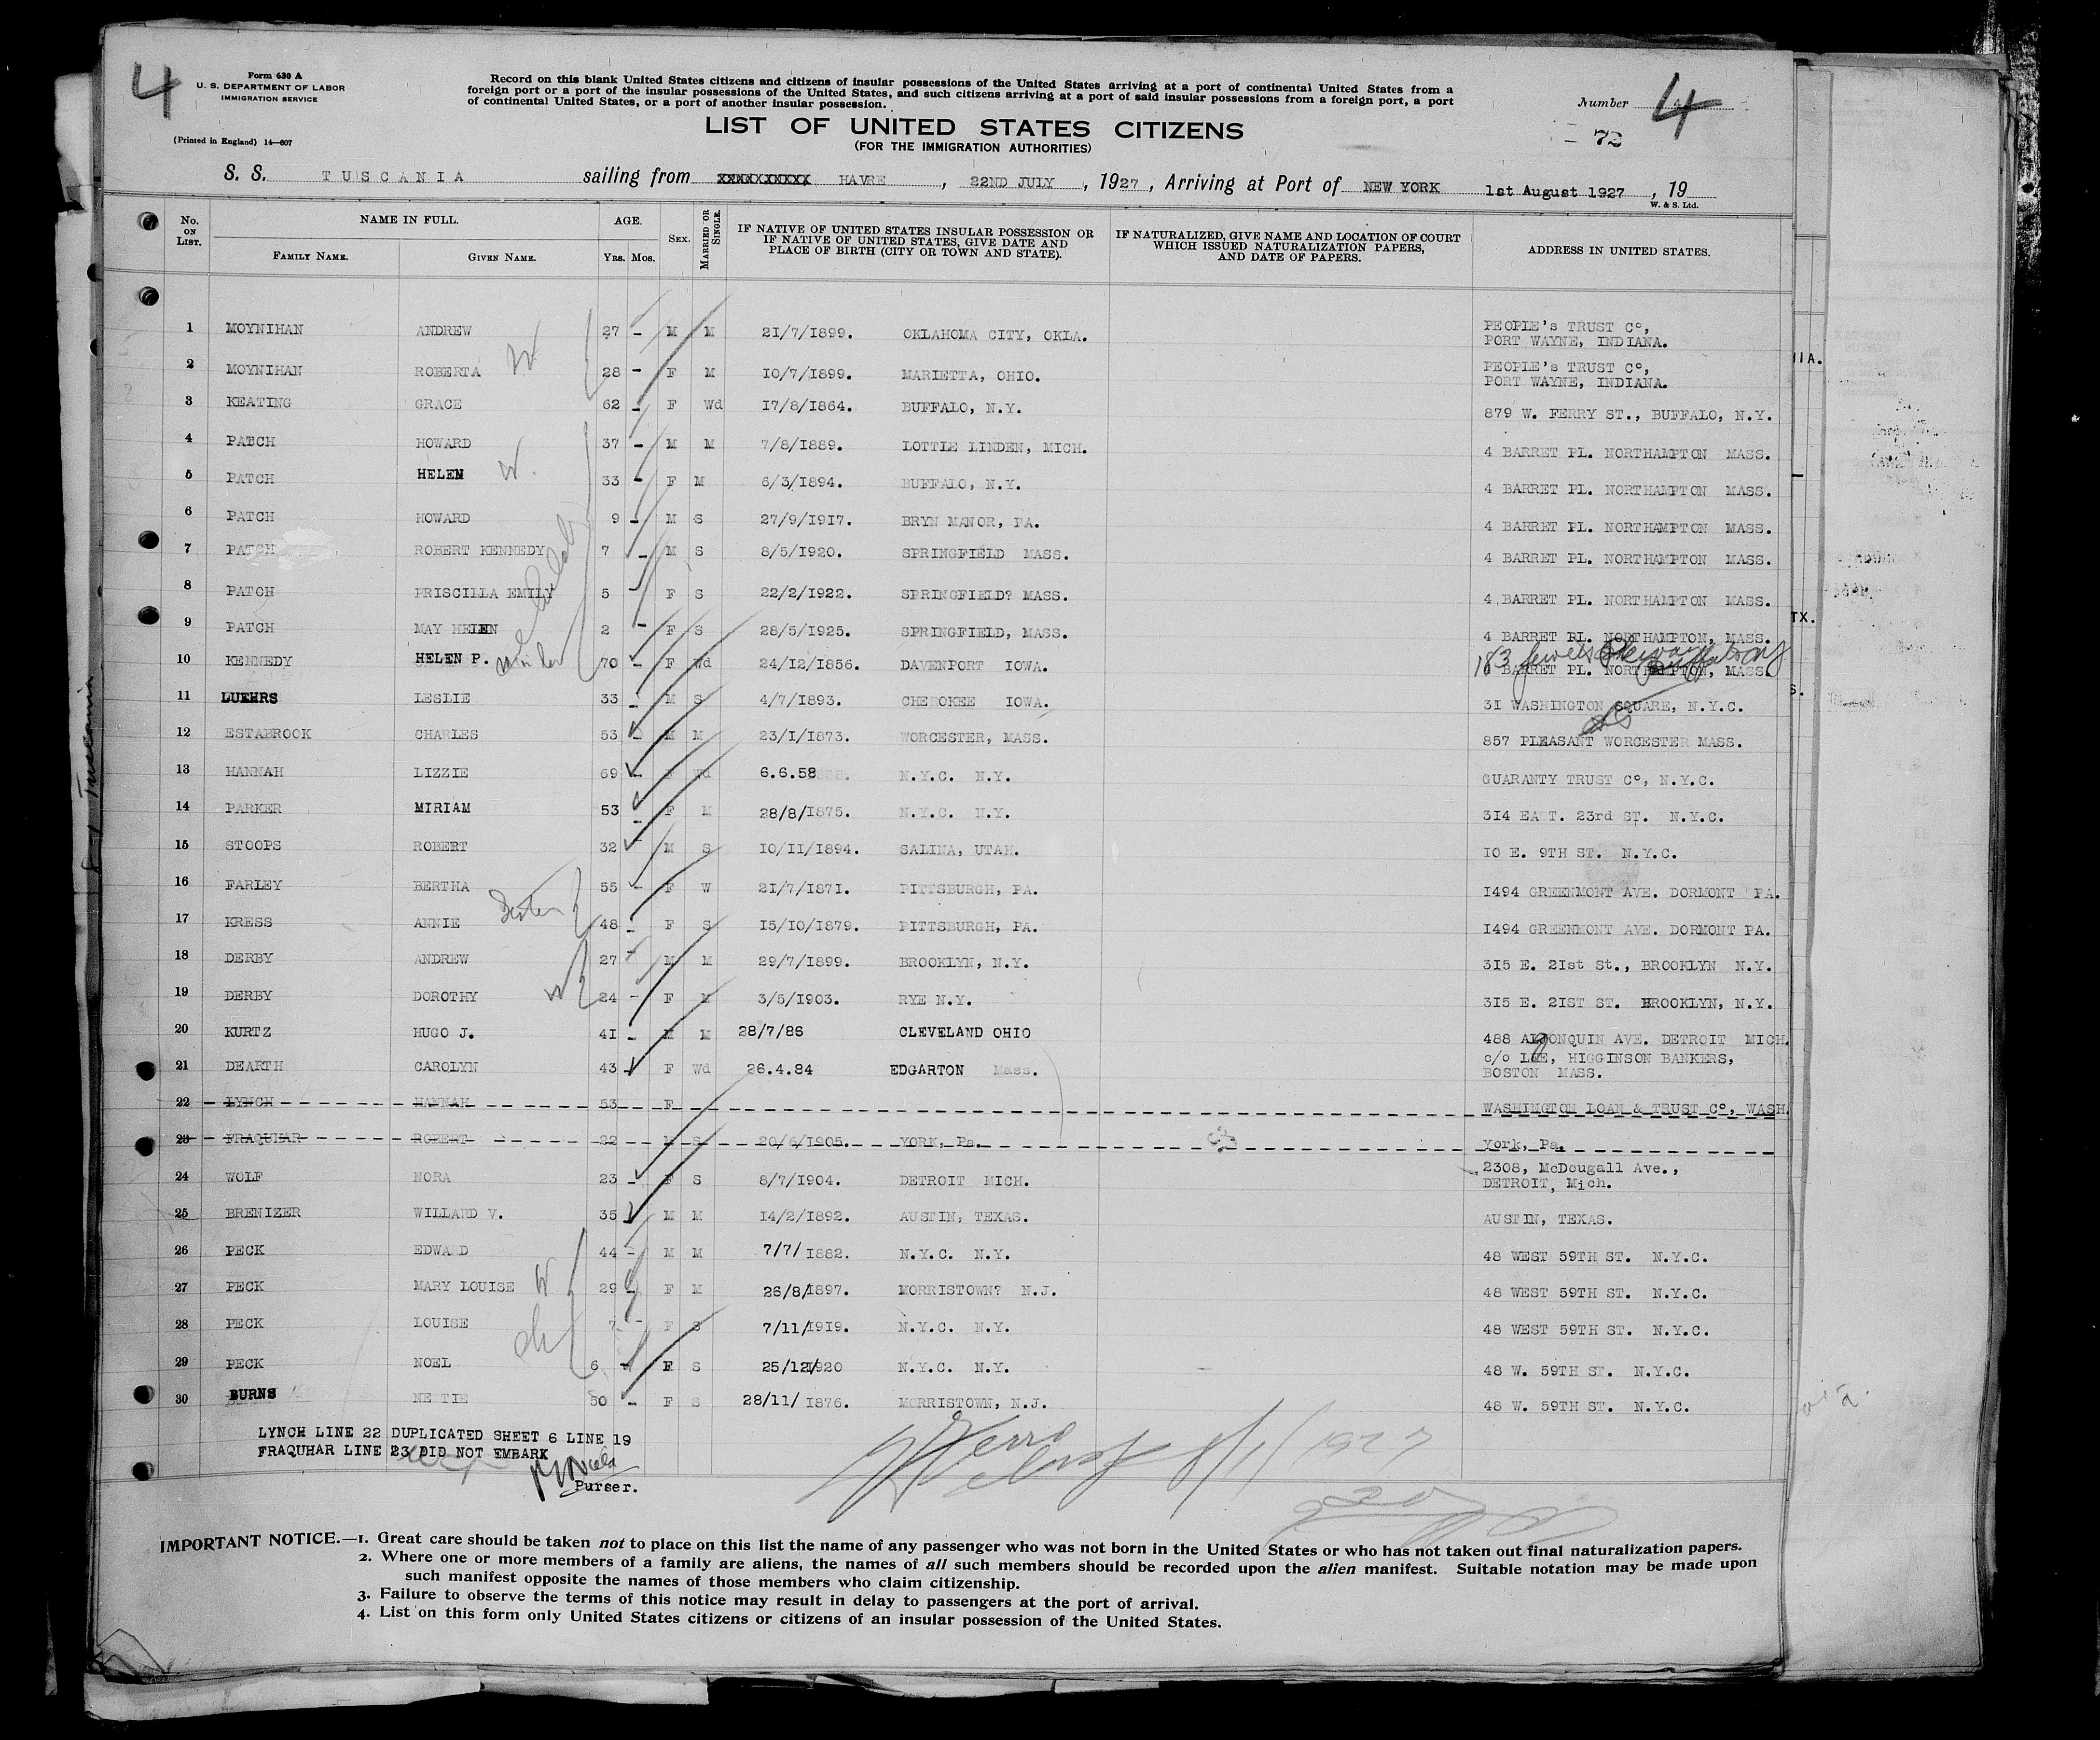 4
Form 630 A
U. S. DEPARTMENT OF LABOR
IMMIGRATION SERVICE
(Printed in England) 14—607
Record on this blank United States citizens and citizens of insular possessions of the United States arriving at a port of continental United States from a
foreign port or a port of the insular possessions of the United States, and such citizens arriving at a port of said insular possessions from a foreign port, a port
of continental United States, or a port of another insular possession.
Number 4
72
LIST OF UNITED STATES CITIZENS
(FOR THE IMMIGRATION AUTHORITIES)
S. S. TUSCANIA sailing from XXXXXXXXXX HAVRE, 22ND JULY, 1927, Arriving at Port of NEW YORK 1st August 1927, 19
W. & S. Ltd.
No. ON LIST. NAME IN FULL. FAMILY NAME. GIVEN NAME. AGE. YRS. MOS. SEX. MARRIED OR SINGLE. IF NATIVE OF UNITED STATES INSULAR POSSESSION OR IF NATIVE OF UNITED STATES, GIVE DATE AND PLACE OF BIRTH (CITY OR TOWN AND STATE). IF NATURALIZED, GIVE NAME AND LOCATION OF COURT WHICH ISSUED NATURALIZATION PAPERS, AND DATE OF PAPERS. ADDRESS IN UNITED STATES.
1 MOYNIHAN ANDREW 27 - M M 21/7/1899. OKLAHOMA CITY, OKLA. PEOPLE's TRUST Cº,
PORT WAYNE, INDIANA.
2 MOYNIHAN ROBERTA W 28 - F M 10/7/1899. MARIETTA, OHIO. PEOPLE's TRUST Cº,
PORT WAYNE, INDIANA.
3 KEATING GRACE 62 - F Wd 17/8/1864. BUFFALO, N.Y. 879 W. FERRY ST., BUFFALO, N.Y.
4 PATCH HOWARD 37 - M M 7/8/1889. LOTTLE LINDEN, MICH. 4 BARRET PL. NORTHAMPTON MASS.
5 PATCH HELEN W. 33 - F M 6/3/1894. BUFFALO, N.Y. 4 BARRET PL. NORTHAMPTON MASS.
6 PATCH HOWARD 9 - M S 27/9/1917. BRYN MANOR, PA. 4 BARRET PL. NORTHAMPTON MASS.
7 PATCH ROBERT KENNEDY 7 - M S 8/5/1920. SPRINGFIELD MASS. 4 BARRET PL. NORTHAMPTON MASS.
8 PATCH PRISCILLA EMILY 5 - F S 22/2/1922. SPRINGFIELD? MASS. 4 BARRET PL. NORTHAMPTON MASS.
9 PATCH MAY HELEN 2 - F S 28/5/1925. SPRINGFIELD, MASS. 4 BARRET PL. NORTHAMPTON, MASS.
10 KENNEDY HELEN P. 70 - F Wd 24/12/1856. DAVENPORT IOWA. 4 BARRET PL. NORTHAMPTON, MASS.
11 LUEHRS LESLIE 33 - M S 4/7/1893. CHEROKEE IOWA. 31 WASHINGTON SQUARE, N.Y.C.
12 ESTABROOK CHARLES 53 - M M 23/1/1873. WORCESTER, MASS. 857 PLEASANT WORCESTER MASS.
13 HANNAH LIZZIE 69 - F Wd 6.6.58 N.Y.C. N.Y. GUARANTY TRUST Cº, N.Y.C.
14 PARKER MIRIAM 53 - F M 28/8/1875. N.Y.C. N.Y. 314 EAST. 23rd ST. N.Y.C.
15 STOOPS ROBERT 32 - M S 10/11/1894. SALINA, UTAH. 10 E. 9TH ST. N.Y.C.
16 FARLEY BERTHA 55 - F W 21/7/1871. PITTSBURGH, PA. 1494 GREENMONT AVE. DORMONT PA.
17 KRESS ANNIE Sister 48 - F S 15/10/1879. PITTSBURGH, PA. 1494 GREENMONT AVE. DORMONT PA.
18 DERBY ANDREW 27 - M M 29/7/1899. BROOKLYN, N.Y. 315 E. 21st St., BROOKLYN N.Y.
19 DERBY DOROTHY W 24 - F M 3/5/1903. RYE N.Y. 315 E. 21ST ST. BROOKLYN, N.Y.
20 KURTZ HUGO J. 41 - M M 28/7/86 CLEVELAND OHIO 488 ALGONQUIN AVE. DETROIT MICH.
21 DEARTH CAROLYN 43 - F Wd 26.4.84 EDGARTON Mass. c/o LEE, HIGGINSON BANKERS,
BOSTON MASS.
22 LYNCH HANNAH 53 F WASHINGTON LOAN & TRUST Cº, WASH.
23 FRAQUHAR ROBERT 22 M S 20/6/1905. YORK, Pa. York, Pa.
24 WOLF NORA 23 - F S 8/7/1904. DETROIT MICH. 2308, McDougall Ave.,
DETROIT, Mich.
25 BRENIZER WILLARD V. 35 M M 14/2/1892. AUSTIN, TEXAS. AUSTIN, TEXAS.
26 PECK EDWARD 44 - M M 7/7/1882. N.Y.C. N.Y. 48 WEST 59TH ST. N.Y.C.
27 PECK MARY LOUISE W 29 - F M 26/8/1897. MORRISTOWN? N.J. 48 WEST 59TH ST. N.Y.C.
28 PECK LOUISE ch 7 - F S 7/11/1919. N.Y.C. N.Y. 48 WEST 59TH ST. N.Y.C.
29 PECK NOEL 6 - F S 25/12/1920 N.Y.C. N.Y. 48 W. 59TH ST. N.Y.C.
30 BURNS NETTIE 50 - F S 28/11/1876. MORRISTOWN, N.J. 48 W. 59TH ST. N.Y.C.
LYNCH LINE 22 DUPLICATED SHEET 6 LINE 19
FRAQUHAR LINE 23 DID NOT EMBARK
Purser.
8/1/1927
IMPORTANT NOTICE.—1. Great care should be taken not to place on this list the name of any passenger who was not born in the United States or who has not taken out final naturalization papers.
2. Where one or more members of a family are aliens, the names of all such members should be recorded upon the alien manifest. Suitable notation may be made upon
such manifest opposite the names of those members who claim citizenship.
3. Failure to observe the terms of this notice may result in delay to passengers at the port of arrival.
4. List on this form only United States citizens or citizens of an insular possession of the United States.